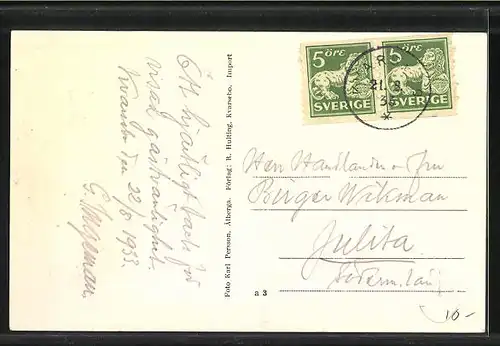 Ett hjärtligt tack för
visad gästfrihet.
Kvarsebo den 22/8 1933.
G. Hageman.
Foto Karl Persson, Åberga. Förlag: R. Hulting, Kvarsebo. Import
5 ÖRE
SVERIGE
5 ÖRE
SVERIGE
21.8.
Herr Handlanden o Fru
Birger Wikman
Julita
Söderm. län
a 3
10-